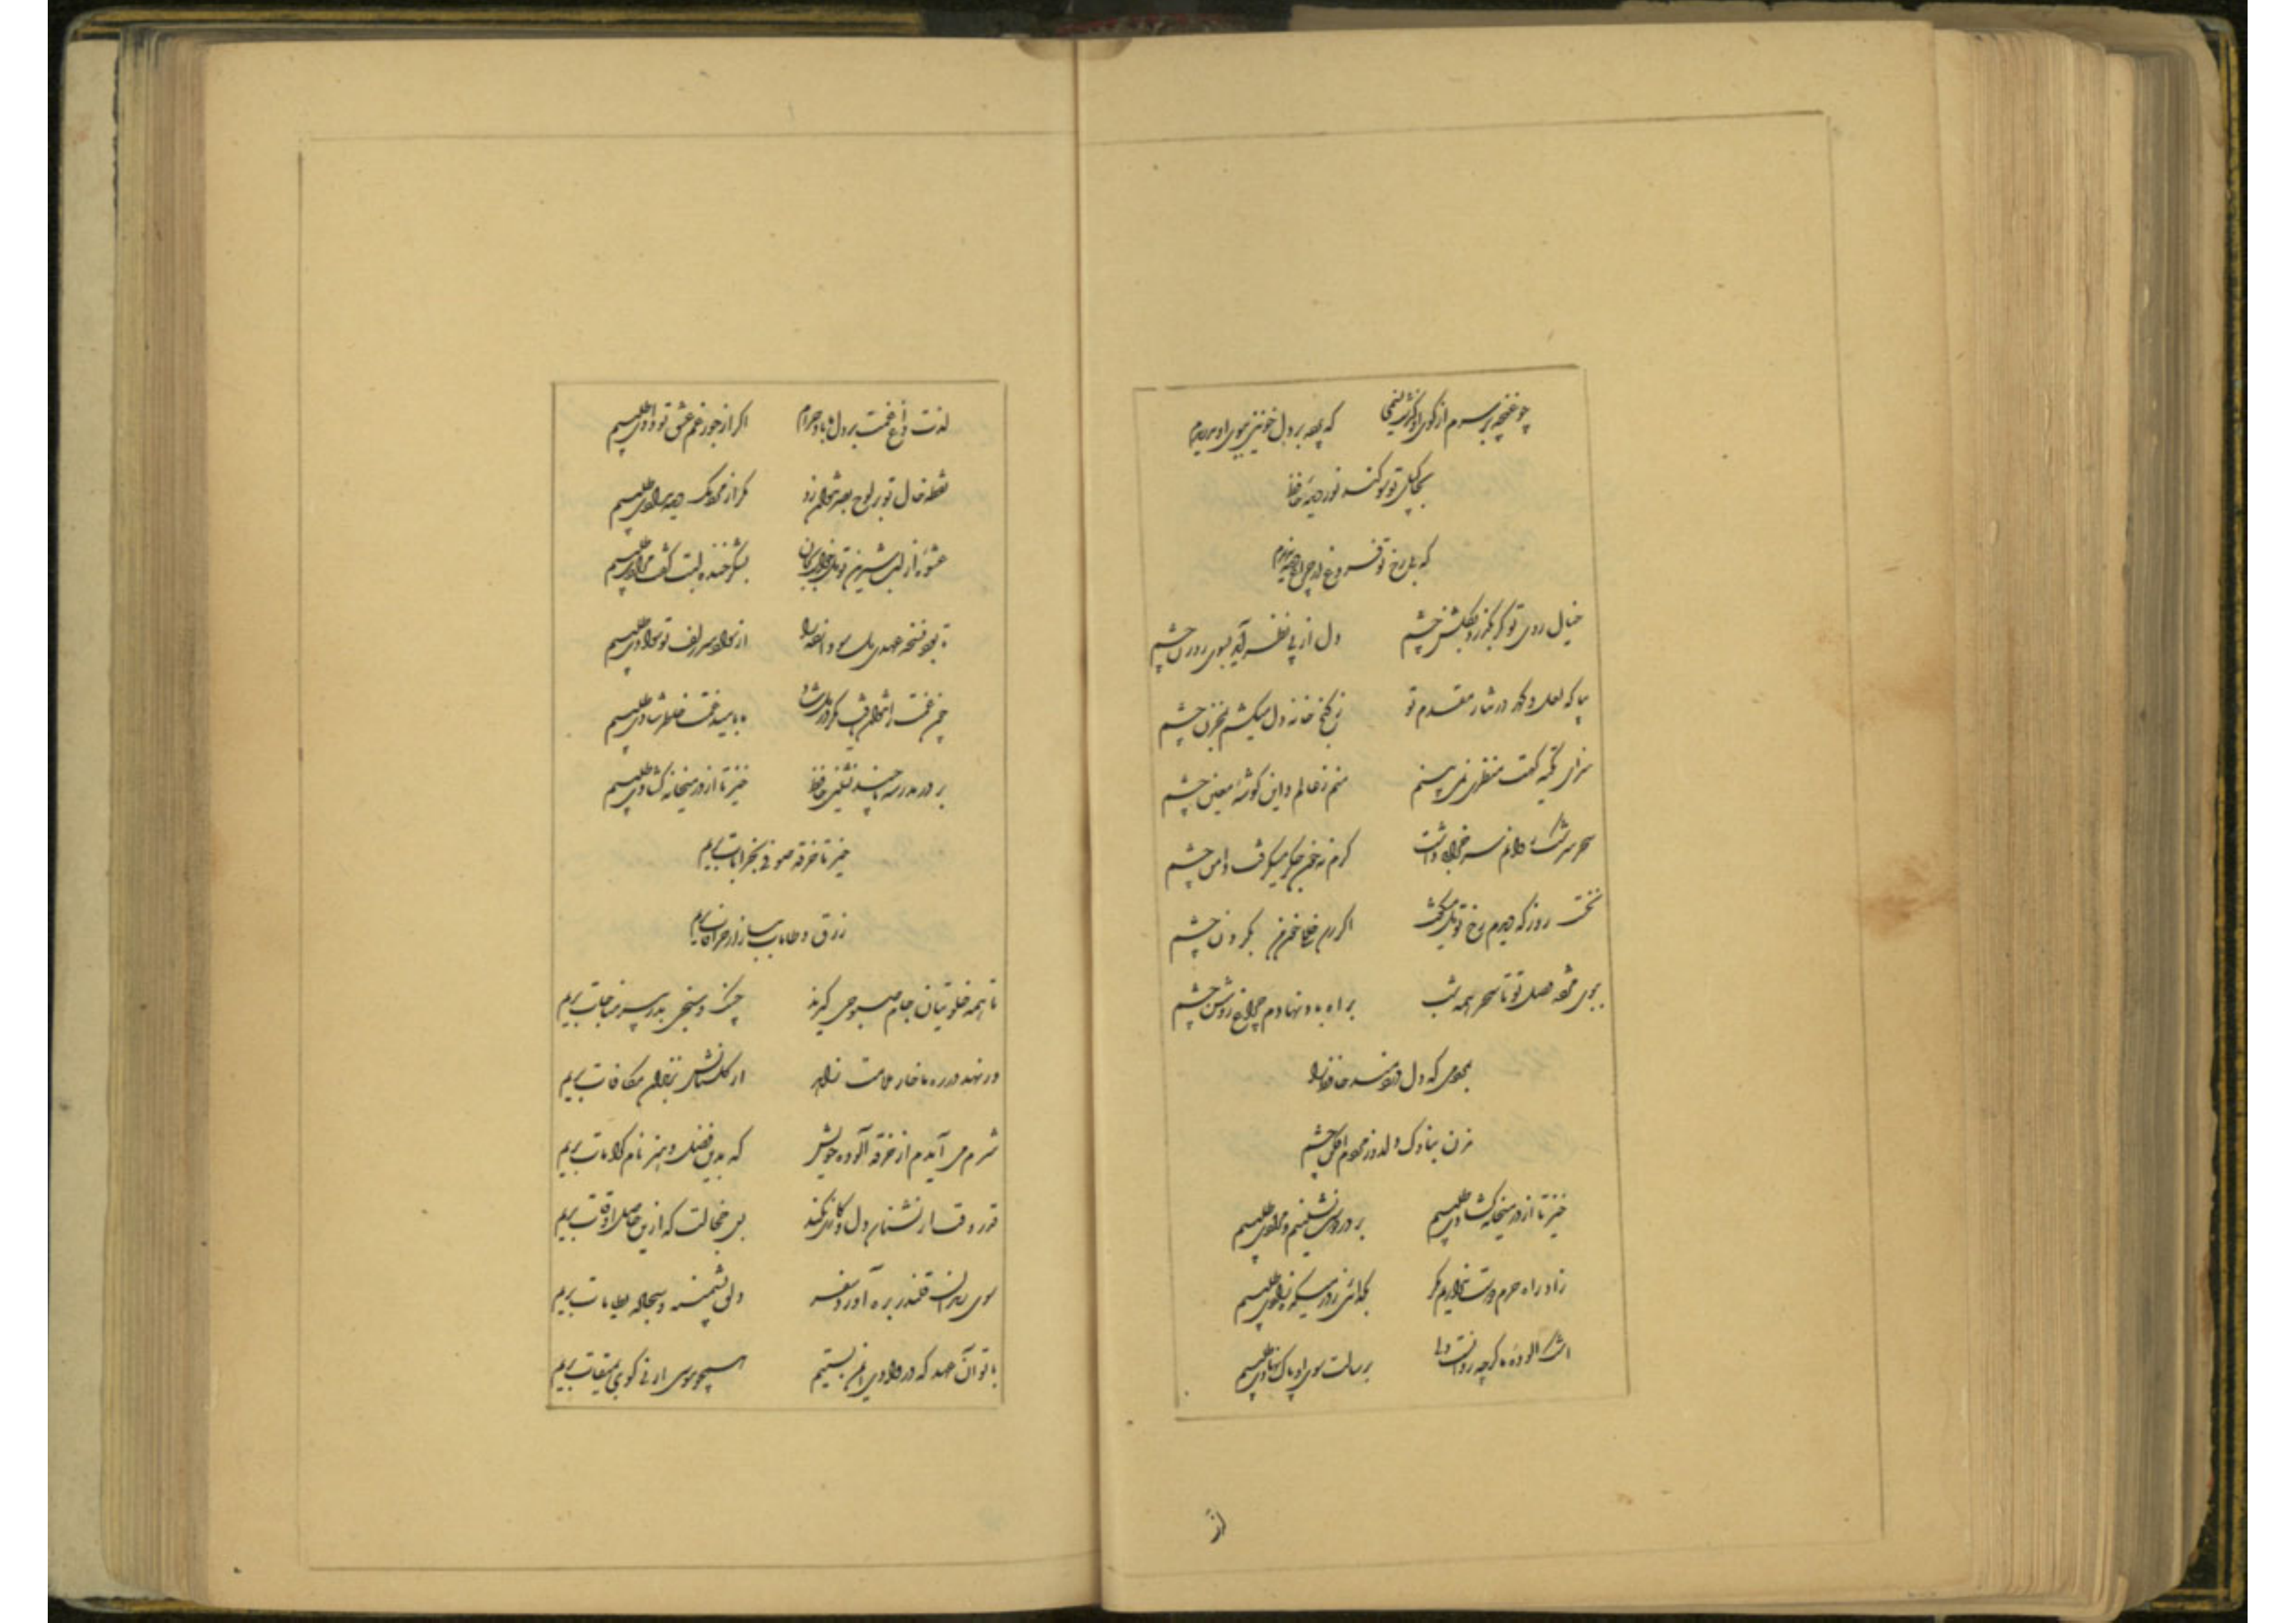 چو غنچه بر سرم از کوی او گذشت نسیمی که پرده بر دل خونین ببوی او بدریدم
بخاک پای تو سوکند نور دیده حافظ
که بی رخ تو فروغ از چراغ دیده ندیدم
خیال روی تو کر بکذرد بکلشن چشم دل از پی نظر آید بسوی روزن چشم
بیا که لعل و کهر در نثار مقدم تو ز کنج خانه دل میکشم بمخزن چشم
سزای تکیه کهت منظری نمی بینم منم ز عالم و این کوشه معین چشم
سحر سرشک روانم سر خرابی داشت کرم نه خون جکر میکرفت دامن چشم
نخست روز که دیدم رخ تو دل میکفت اکر رسد خللی خون من بکردن چشم
ببوی مژده وصل تو تا سحر همه شب براه باد نهادم چراغ روشن چشم
بمردمی که دل دردمند حافظ را
مزن بناوک دلدوز مردم افکن چشم
خیز تا از در میخانه کشادی طلبیم بر در دوست نشینیم و مرادی طلبیم
زاد راه حرم دوست نداریم مکر بکدائی ز در میکده زادی طلبیم
اشک آلوده ما کرچه روانست ولی برسالت سوی او پاک نهادی طلبیم
لذت داغ غمت بر دل ما باد حرام اکر از جور غم عشق تو دادی طلبیم
نقطه خال تو بر لوح بصر نتوان زد مکر از مردمک دیده مدادی طلبیم
عشوه از لب شیرین تو دل خواست بجان بشکر خنده لبت کفت مرادی طلبیم
تا بود نسخه عطری دل سودازده را از سواد سر زلف تو سوادی طلبیم
چون غمت را نتوان یافت مکر در دل شاد ما بامید غمت خاطر شادی طلبیم
بر در مدرسه تا چند نشینی حافظ خیز تا از در میخانه کشادی طلبیم
خیز تا خرقه صوفی بخرابات بریم
زرق و طامات ببازار خرافات بریم
تا همه خلوتیان جام صبوحی کیرند چنک و سنجی بدر پیر مناجات بریم
ور نهد در ره ما خار ملامت زاهد از کلستانش بزندان مکافات بریم
شرم می آیدم از خرقه آلوده خویش که بدین فضل و هنر نام کرامات بریم
قدر وقت ار نشناسد دل و کاری نکند بس خجالت که ازین حاصل اوقات بریم
سوی رندان قلندر بره آورد سفر دلق پشمینه و سجاده طامات بریم
با تو آن عهد که در وادی ایمن بستیم همچو موسی ارنی کوی بمیقات بریم